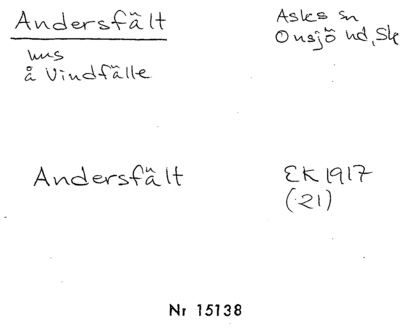 Andersfält
Asks sn
Onsjö hd, Sk
hus
å Vindfälle
Andersfält
EK 1917
(21)
Nr 15138